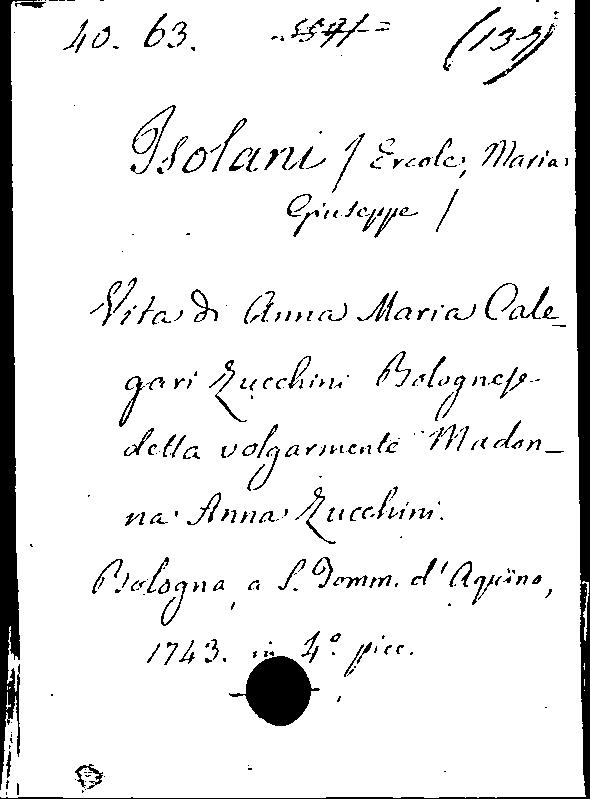 40. 63. (137)
Isolani / Ercole, Maria
Giuseppe /
Vita di Anna Maria Cale_
gari Zucchini Bolognese
detta volgarmente Madon_
na Anna Zucchini.
Bologna, a S. Tomm. d'Aquino,
1743. in 4º picc.